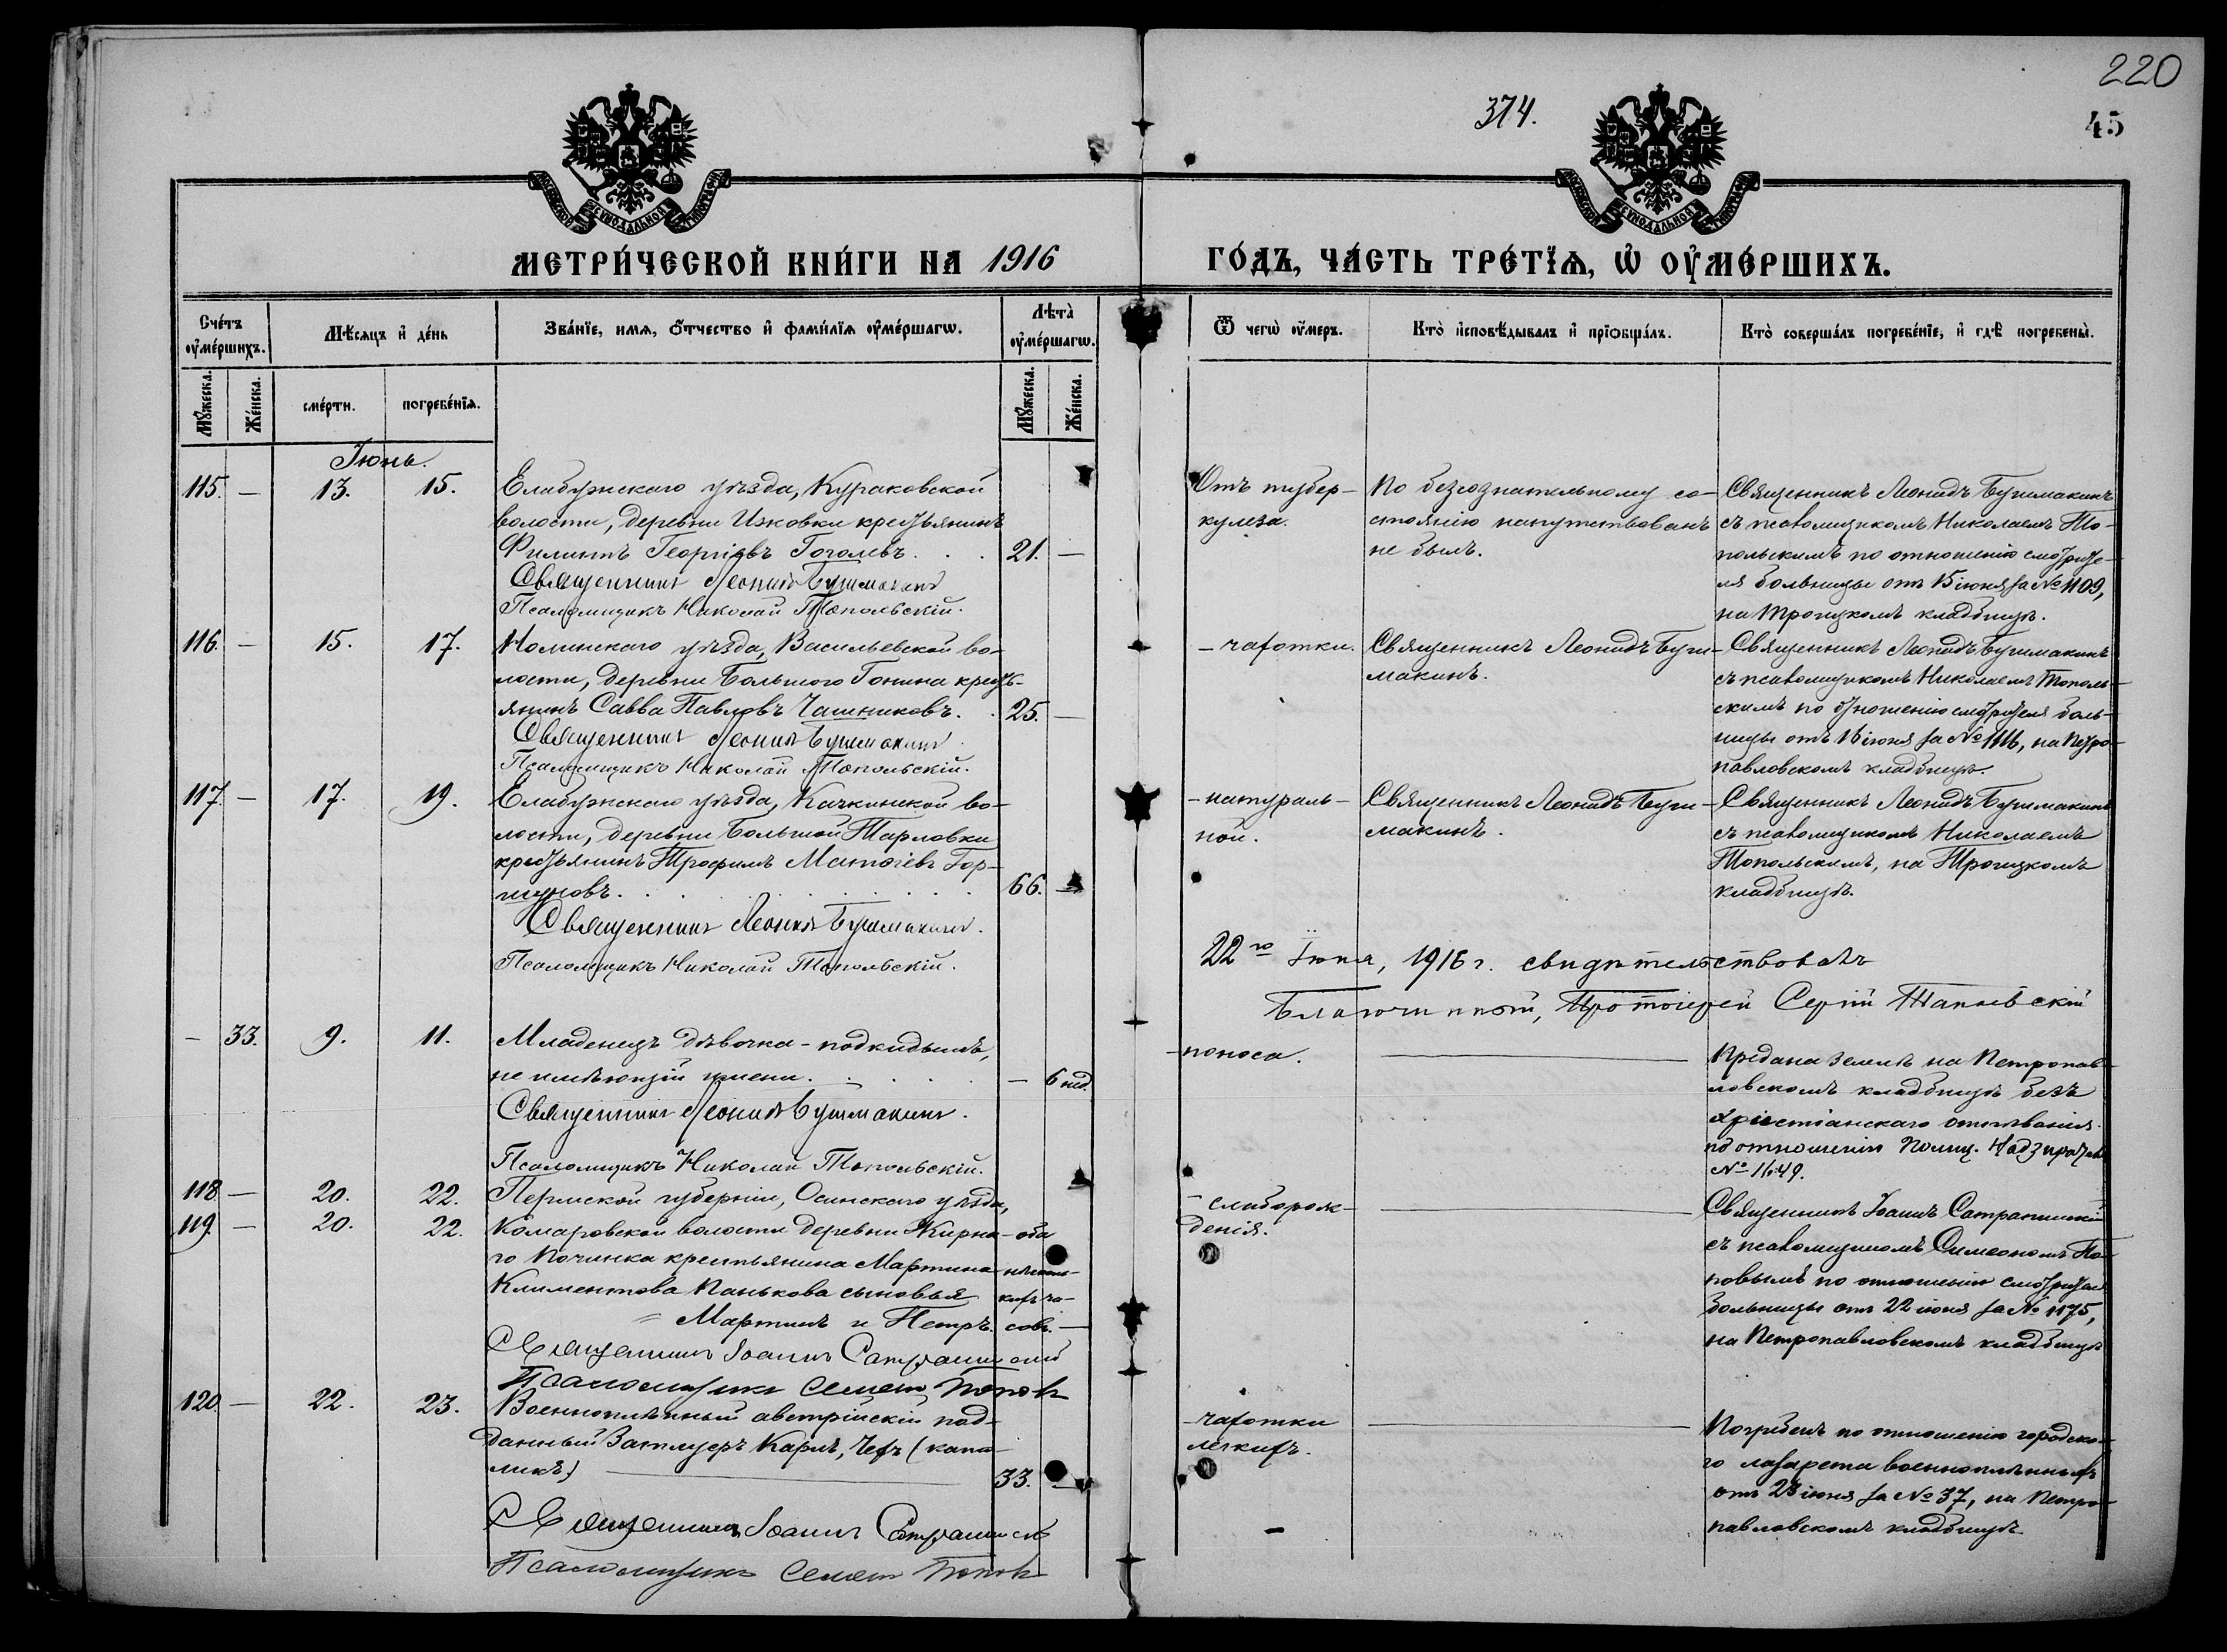 220
374.
45
МЕТРИ́ЧЕСКОЙ КНИ́ГИ НА 1916
ГО́ДЪ, ЧА́СТЬ ТРЕ́ТЇѦ, Ѡ҆ ОУ҆МЕ́РШИХЪ.
Сче́тъ оу҆ме́ршихъ.
Мѣ́сяцъ и҆ де́нь
Зва́нїе, имѧ, ѻ҆́тчество и҆ фами́лїѧ оу҆ме́ршагѡ.
Лѣта̀ оу҆ме́ршагѡ.
Ѿ чегѡ̀ оу҆́меръ.
Кто̀ и҆сповѣ́дывалъ и҆ прїѡбща́лъ.
Кто̀ соверша́лъ погребе́нїе, и҆ гдѣ̀ погребены̀.
Мꙋ́жеска.
Же́нска.
сме́рти.
погребе́нїѧ.
Мꙋ́жеска.
Же́нска.
Іюнь.
115. — 13. 15.
Елабужскаго уѣзда, Кураковской
волости, деревни Ижовки крестьянинъ
Филиппъ Георгіевъ Гоголевъ. . . 21. —
Священникъ Леонидъ Бушмакинъ
Псаломщикъ Николай Топольскій.
Отъ тубер-
кулеза.
По безсознательному со-
стоянію напутствованъ
не былъ.
Священникъ Леонидъ Бушмакинъ
съ псаломщикомъ Николаемъ То-
польскимъ по отношенію смотрите-
ля больницы отъ 15 іюня за № 1109,
на Троицкомъ кладбищѣ.
116. — 15. 17.
Нолинскаго уѣзда, Васильевской во-
лости, деревни Большого Гонина кресть-
янинъ Савва Павловъ Чашниковъ. . 25. —
Священникъ Леонидъ Бушмакинъ
Псаломщикъ Николай Топольскій.
- чахотки.
Священникъ Леонидъ Буш-
макинъ.
Священникъ Леонидъ Бушмакинъ
съ псаломщикомъ Николаемъ Тополь-
скимъ по отношенію смотрителя боль-
ницы отъ 16 іюня за № 1116, на Петро-
павловскомъ кладбищѣ.
117. — 17. 19.
Елабужскаго уѣзда, Качкинской во-
лости, деревни Большой Тарловки
крестьянинъ Трофимъ Матвіевъ Гор-
шуновъ. . . . . . . . 66. —
Священникъ Леонидъ Бушмакинъ.
Псаломщикъ Николай Топольскій.
- натураль-
ной.
Священникъ Леонидъ Буш-
макинъ.
Священникъ Леонидъ Бушмакинъ
съ псаломщикомъ Николаемъ
Топольскимъ, на Троицкомъ
кладбищѣ.
22го Іюня, 1916 г. свидѣтельствовалъ
Благочинный, Протоіерей Сергій
— 33. 9. 11.
Младенецъ дѣвочка-подкидышъ,
не имѣющій имени. . . . . — 6 нед.
Священникъ Леонидъ Бушмакинъ.
Псаломщикъ Николай Топольскій.
-поноса.
—
Предана землѣ на Петропав-
ловскомъ кладбищѣ безъ
христіанскаго отпѣванія
по отношенію Полиц. Надзирателя
№ 1649.
118. — 20. 22.
Пермской губерніи, Осинскаго уѣзда,
119. — 20. 22.
Комаровской волости деревни Жирно- оба
го Починка крестьянина Мартина нѣсколь-
Климентова Панькова сыновья кихъ ча-
Мартинъ и Петръ. совъ. —
Священникъ Іоаннъ
Псаломщикъ Симеонъ Поповъ
- слаборож-
денія.
—
Священникъ Іоаннъ
съ псаломщикомъ Симеономъ По-
повымъ по отношенію смотрителя
больницы отъ 22 іюня за № 1175,
на Петропавловскомъ кладбищѣ
120. — 22. 23.
Военноплѣнный австрійскій под-
данный Затлцеръ Карлъ, Чехъ (като-
ликъ) — 33. —
Священникъ Іоаннъ
Псаломщикъ Симеонъ Поповъ
- чахотки
легкихъ.
—
Погребенъ по отношенію городско-
го лазарета военноплѣнныхъ
отъ 23 іюня за № 37, на Петро-
павловскомъ кладбищѣ